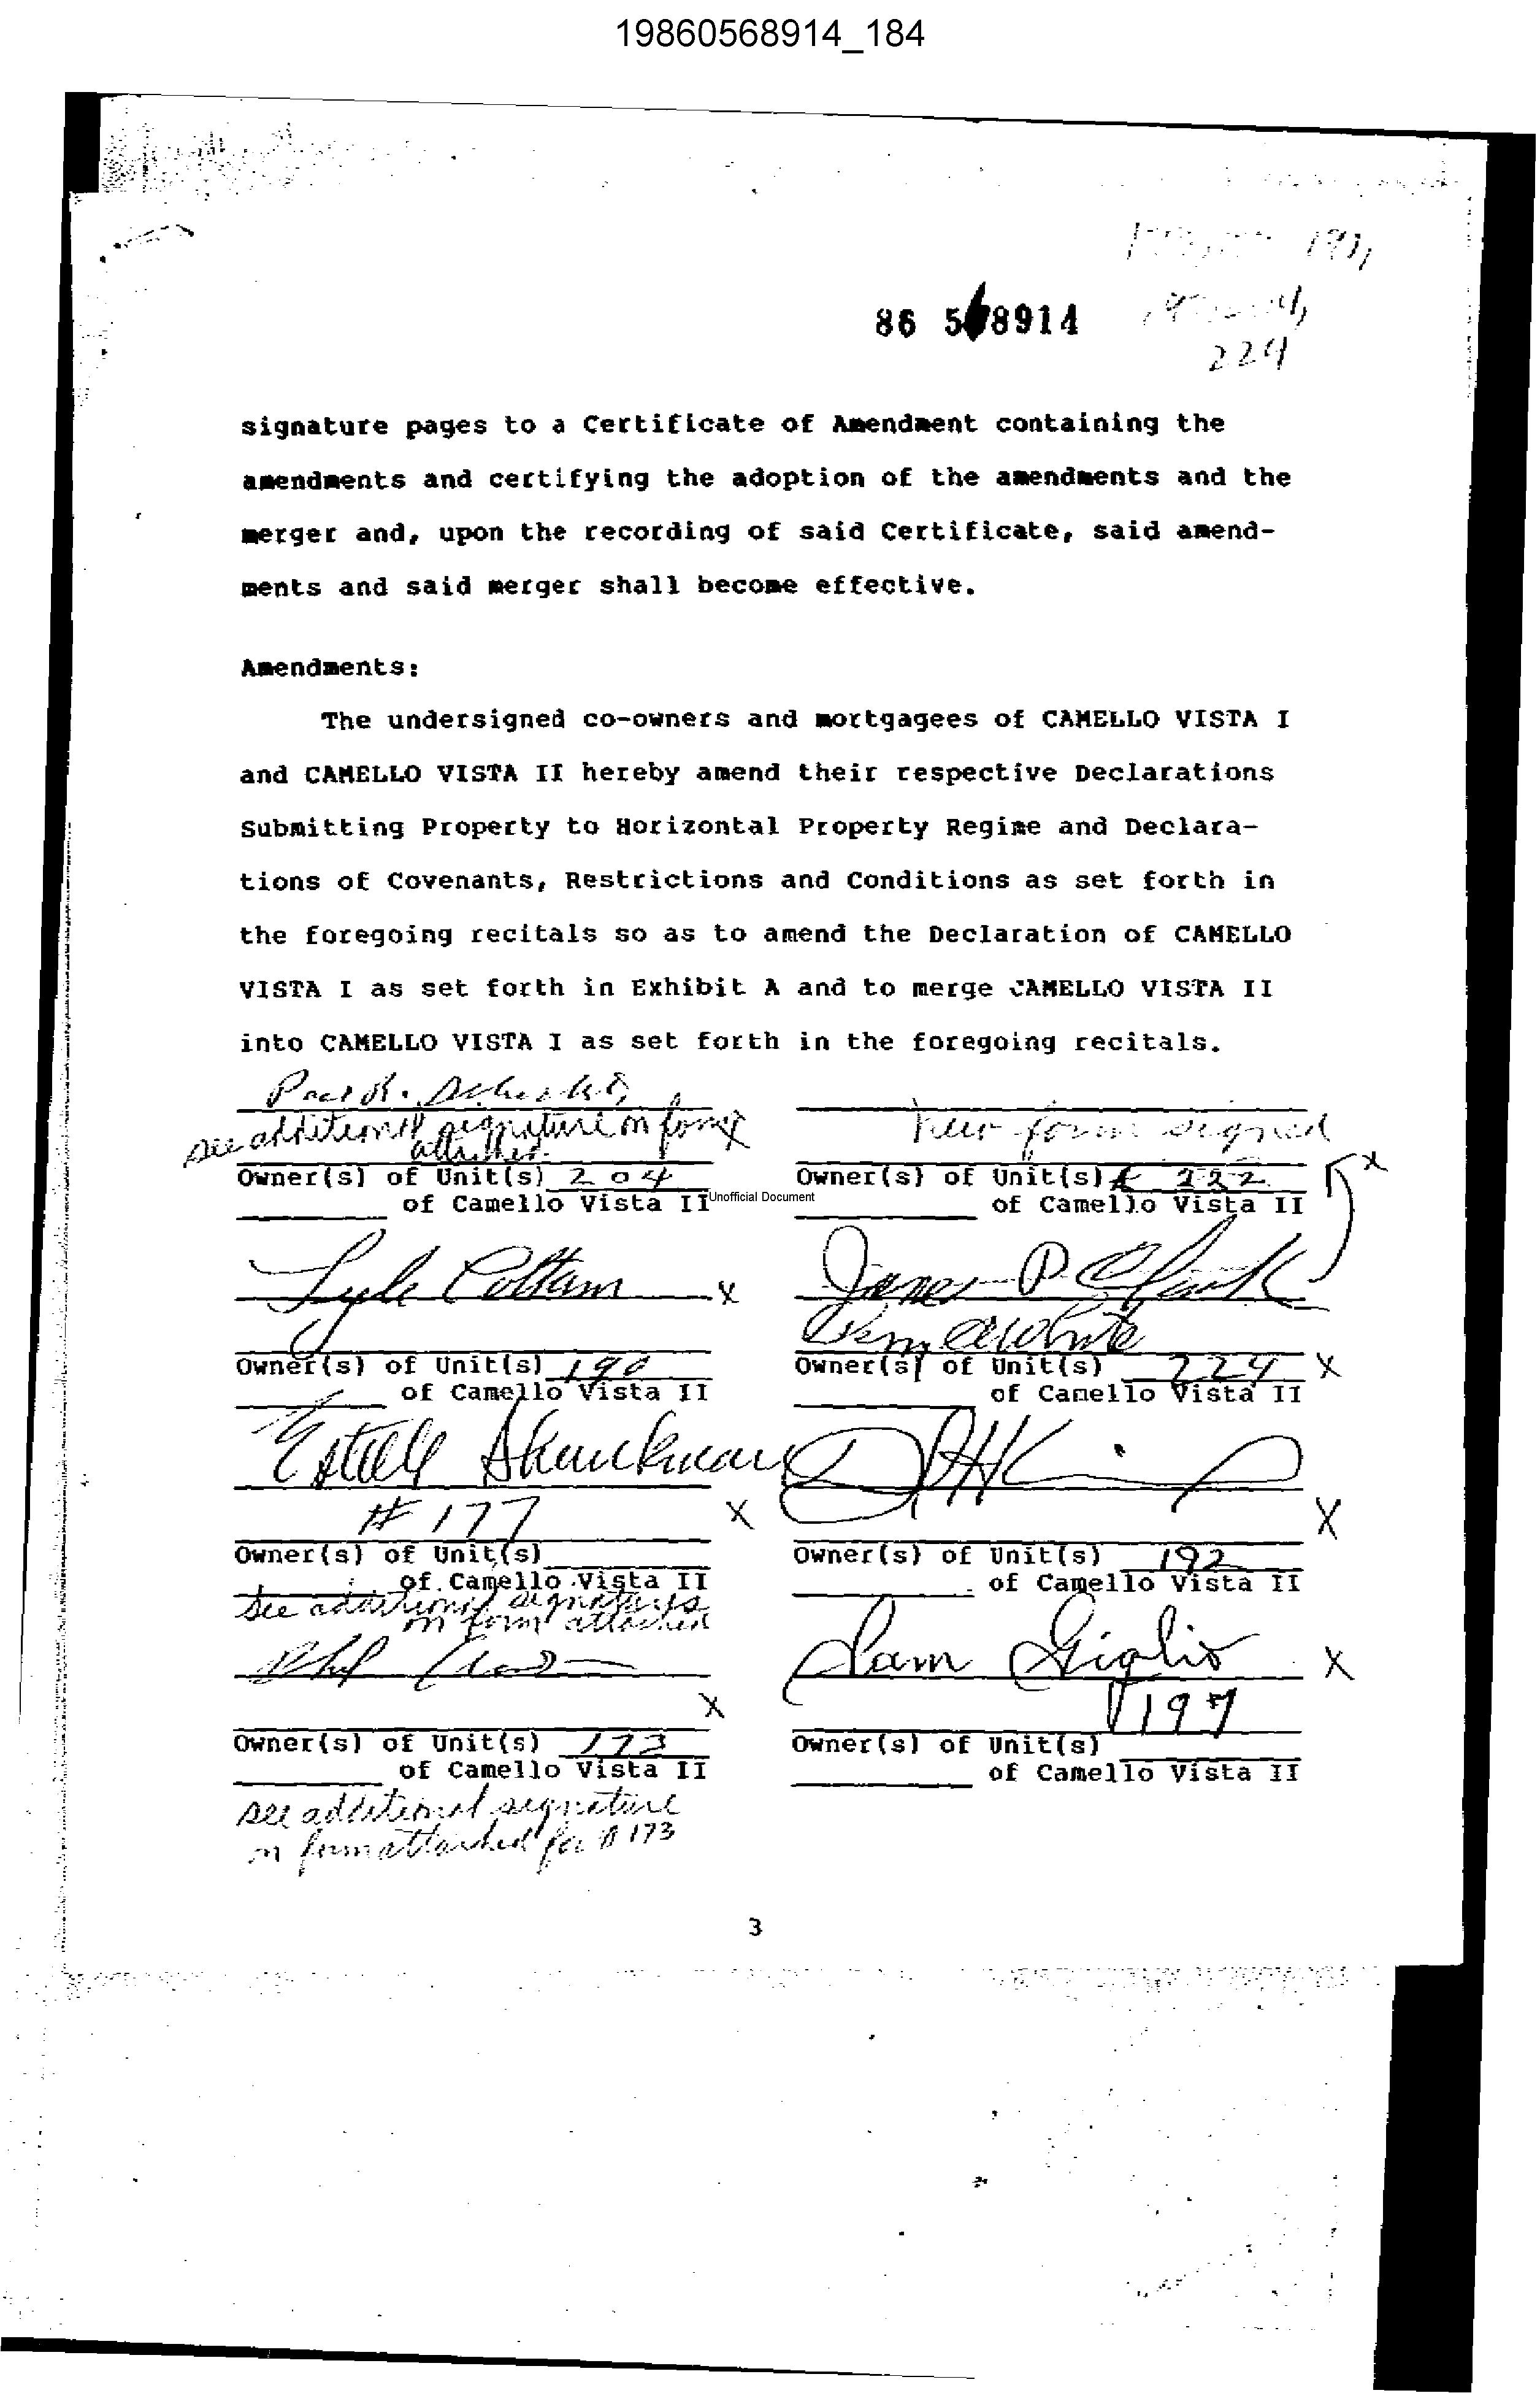 19860568914_184
86 568914
224
signature pages to a Certificate of Amendment containing the
amendments and certifying the adoption of the amendments and the
merger and, upon the recording of said Certificate, said amend-
ments and said merger shall become effective.
Amendments:
The undersigned co-owners and mortgagees of CAMELLO VISTA I
and CAMELLO VISTA II hereby amend their respective Declarations
Submitting Property to Horizontal Property Regime and Declara-
tions of Covenants, Restrictions and Conditions as set forth in
the foregoing recitals so as to amend the Declaration of CAMELLO
VISTA I as set forth in Exhibit A and to merge CAMELLO VISTA II
into CAMELLO VISTA I as set forth in the foregoing recitals.
see additional signature on form
attached
Owner(s) of Unit(s) 204
of Camello Vista II
Unofficial Document
form signed
x
Owner(s) of Unit(s) 222
of Camello Vista II
Lyle Cottam x
Owner(s) of Unit(s) 190
of Camello Vista II
James P Clark
Owner(s) of Unit(s) 224 x
of Camello Vista II
Estelle Shankman
# 177 x
Owner(s) of Unit(s)
of Camello Vista II
see additional signatures
on form attached
x
Owner(s) of Unit(s) 192
of Camello Vista II
x
Owner(s) of Unit(s) 173
of Camello Vista II
see additional signature
on form attached for # 173
Sam Giglio x
197
Owner(s) of Unit(s)
of Camello Vista II
3